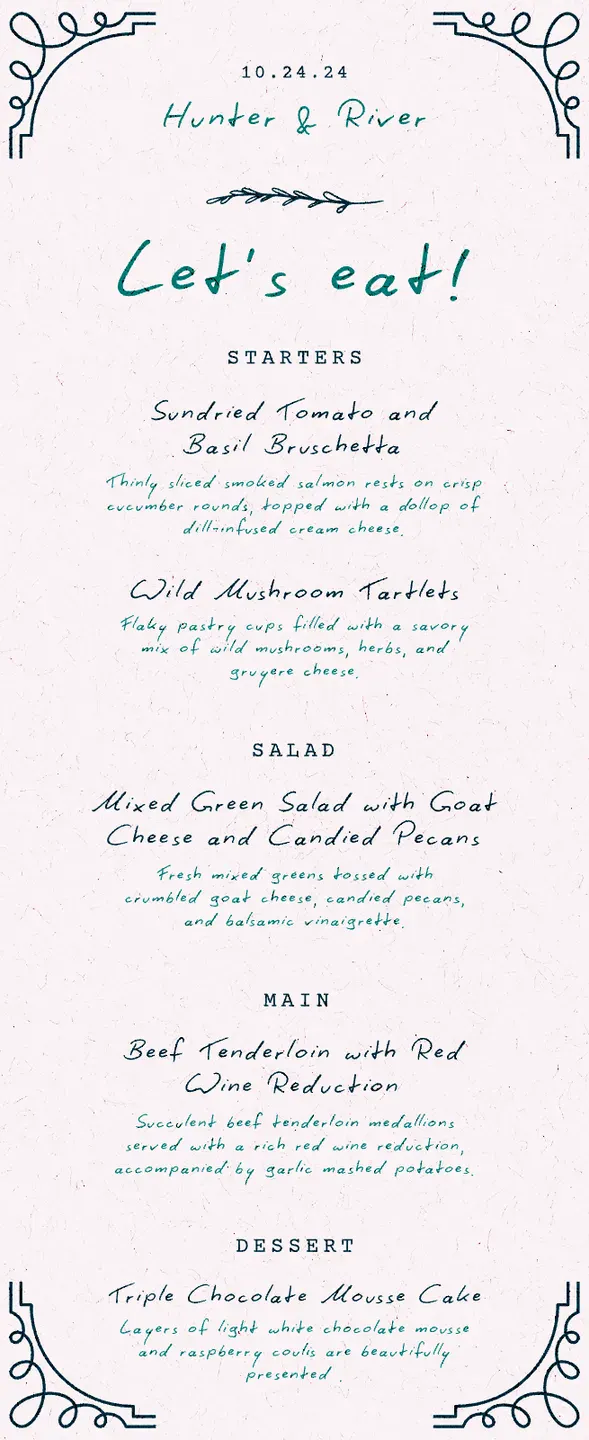 10.24.24
Hunter & River
Let's eat!
STARTERS
Sundried Tomato and
Basil Bruschetta
Thinly sliced smoked salmon rests on crisp
cucumber rounds, topped with a dollop of
dill-infused cream cheese.
Wild Mushroom Tartlets
Flaky pastry cups filled with a savory
mix of wild mushrooms, herbs, and
gruyere cheese.
SALAD
Mixed Green Salad with Goat
Cheese and Candied Pecans
Fresh mixed greens tossed with
crumbled goat cheese, candied pecans,
and balsamic vinaigrette.
MAIN
Beef Tenderloin with Red
Wine Reduction
Succulent beef tenderloin medallions
served with a rich red wine reduction,
accompanied by garlic mashed potatoes.
DESSERT
Triple Chocolate Mousse Cake
Layers of light white chocolate mousse
and raspberry coulis are beautifully
presented .